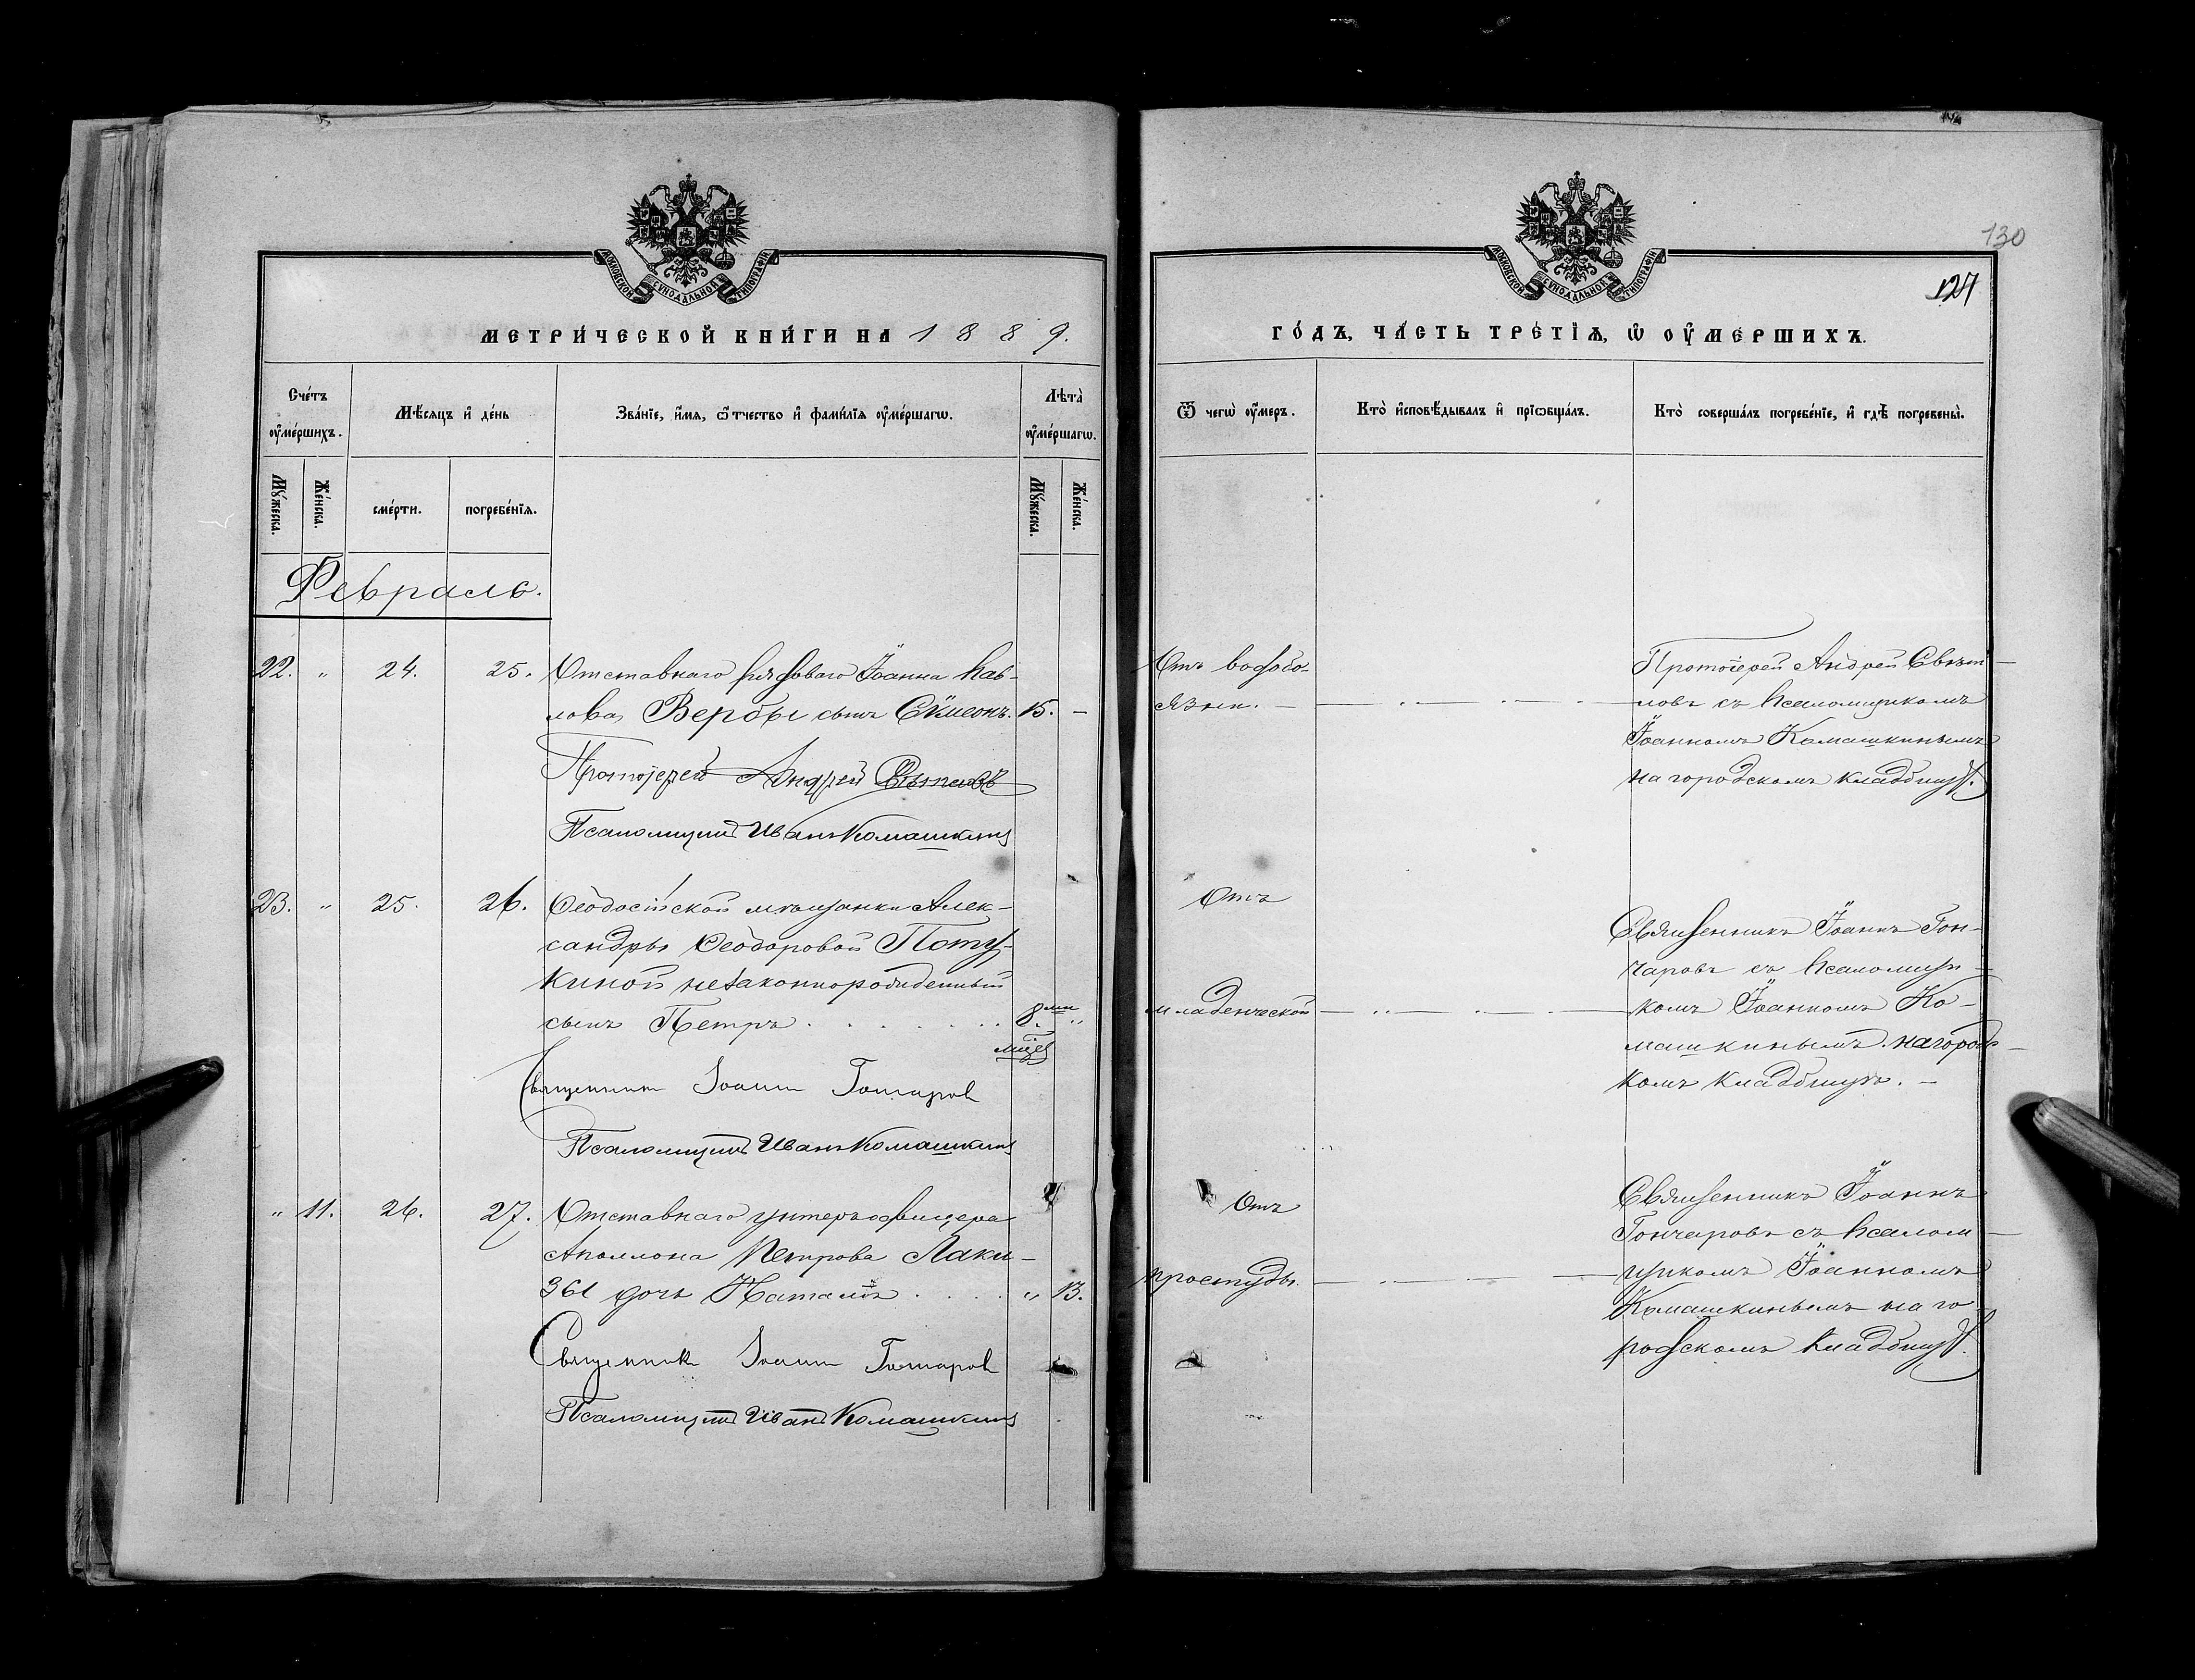 МОСКОВСКОЙ СѴНОДАЛЬНОЙ ТИПОГРАФІИ
МЕТРИ́ЧЕСКОЙ КНИ́ГИ НА 1889.
Сче́тъ ᲂу҆ме́ршихъ.
Мѣ́сѧцъ и҆ де́нь
Зва́нїе, и҆́мѧ, ѻ҆́тчество и҆ фами́лїѧ ᲂу҆ме́ршагѡ.
Лѣ́та ᲂу҆ме́ршагѡ.
Мꙋ́жеска.
Же́нска.
сме́рти.
погребе́нїѧ.
Мꙋ́жеска.
Же́нска.
Февраль.
22. " 24. 25. Отставнаго рядоваго Іоанна Пав-
лова Вербы сынъ Сѵмеонъ. 15. –
Протоіерей Андрей Свѣтловъ
Псаломщикъ Иванъ Комашкинъ
23. " 25. 26. Ѳеодосійской мѣщанки Алек-
сандры Ѳеодоровой Поту-
киной незаконнорожденный
сынъ Петръ . . . . . . 8ми "
мцев
Священник Іоанн Гончаров
Псаломщикъ Иванъ Комашкинъ
" 11. 26. 27. Отставнаго унтеръ офицера
Аполлона Петрова Лаки-
зы дочь Наталія . . . . " 13.
Священник Іоанн Гончаров
Псаломщикъ Иванъ Комашкинъ
130
127
МОСКОВСКОЙ СѴНОДАЛЬНОЙ ТИПОГРАФІИ
ГО́ДЪ, ЧА́СТЬ ТРЕ́ТІѦ, Ѡ҆ ОУ҆МЕ́РШИХЪ.
Ѿ чегѡ̀ ᲂу҆́меръ.
Кто̀ и҆сповѣ́дывалъ и҆ прїѡбща́лъ.
Кто̀ соверша́лъ погребе́нїе, и҆ гдѣ̀ погребены̀.
Отъ водобо-
язни. –
Протоіерей Андрей Свѣт-
ловъ съ псаломщикомъ
Іоанномъ Комашкинымъ
на городскомъ кладбищѣ.
Отъ
младенческой
Священникъ Іоаннъ Гон-
чаровъ съ псаломщи-
комъ Іоанномъ Ко-
машкинымъ. на городс-
комъ кладбищѣ. –
Отъ
простуды.
Священникъ Іоаннъ
Гончаровъ съ псалом-
щикомъ Іоанномъ
Комашкинымъ на го-
родскомъ кладбищѣ.